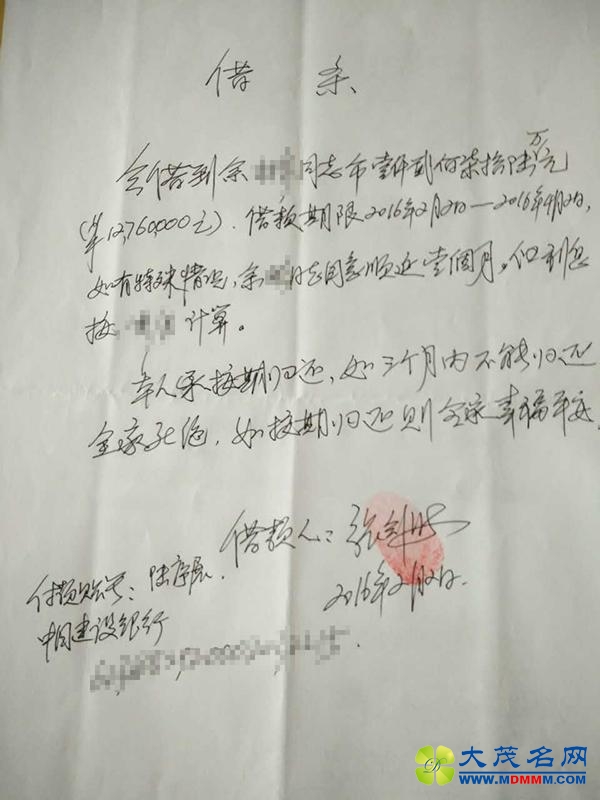 借条
今借到余 同志币壹仟贰佰柒拾陆万元
(¥12,760,000元). 借款期限2016年2月2日—2016年4月2日,
如有特殊情况,余 同意顺延壹個月,但利息
按 计算。
本人承按期归还,如三个月内不能归还
全家死绝,如按期归还则全家幸福平安.
借款人:张剑
2016年2月2日.
付款账号:陆
中国建设银行
大茂名网
WWW.MDMMM.COM